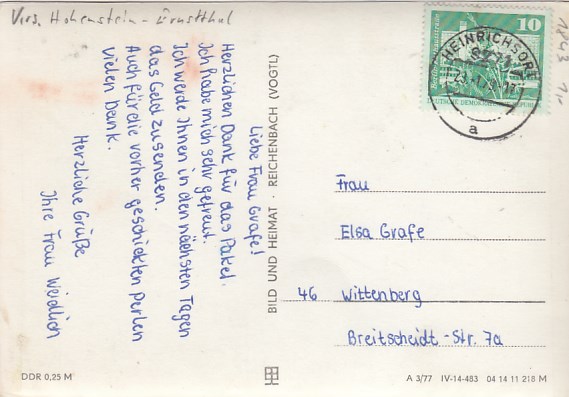 Vers. Hohenstein-Ernstthal
Liebe Frau Grafe!
Herzlichen Dank für das Paket.
Ich habe mich sehr gefreut.
Ich werde Ihnen in den nächsten Tagen
das Geld zusenden.
Auch für die vorher geschickten Perlen
vielen Dank.
Herzliche Grüße
Ihre Frau Weidlich
BILD UND HEIMAT · REICHENBACH (VOGTL)
10
DEUTSCHE DEMOKRATISCHE REPUBLIK
HEINRICHSORT
a
1843
Frau
Elsa Grafe
46 Wittenberg
Breitscheidt-Str. 7a
DDR 0,25 M
A 3/77 IV-14-483 04 14 11 218 M